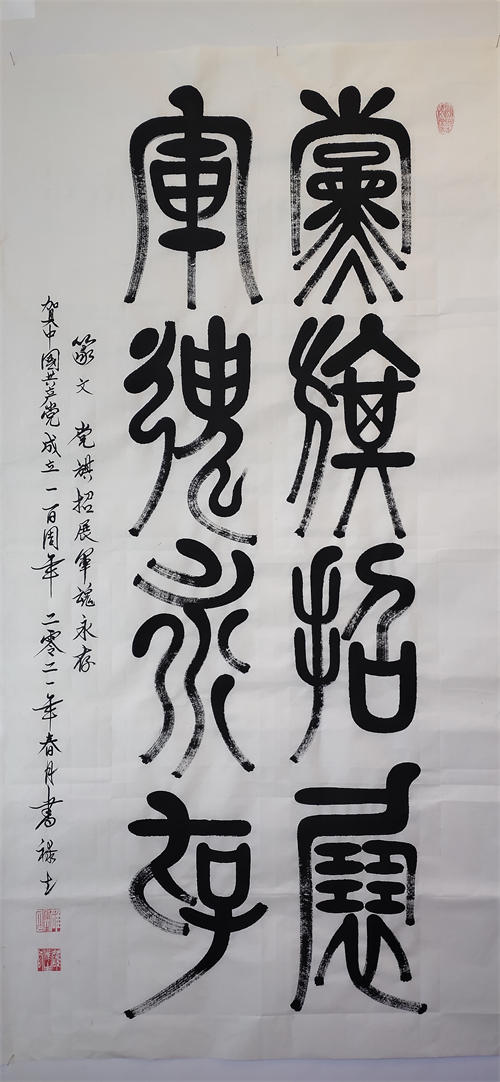 黨旗招展
軍魂永存
篆文 党旗招展軍魂永存
贺中國共产党成立一百周年 二零二一年春月書 禄立